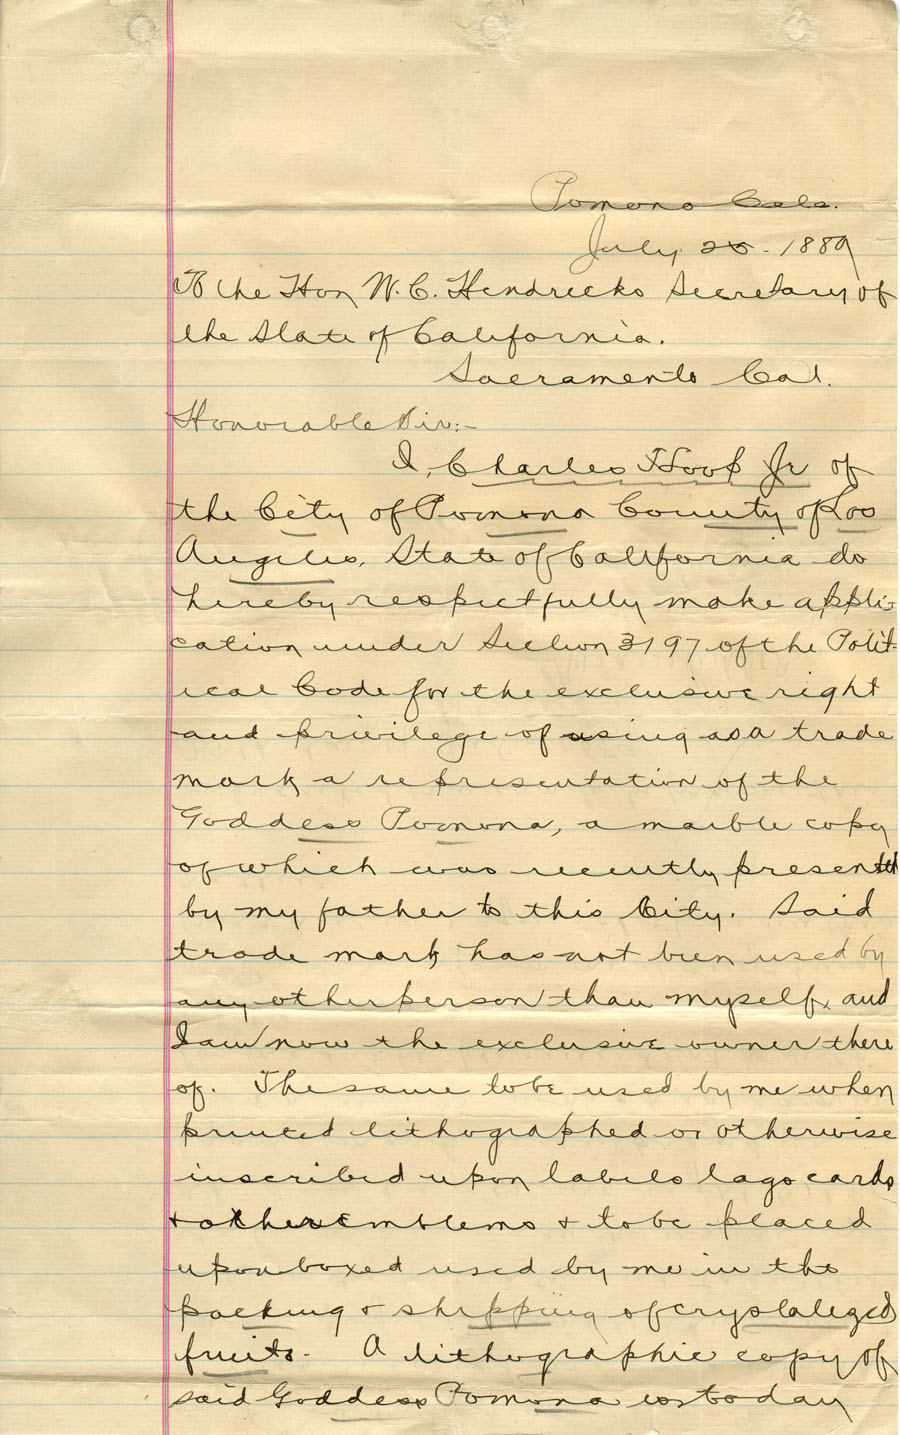 Pomona Cala.
July 25 - 1889
To the Hon W. C. Hendricks Secretary of
the State of California.
Sacramento Cal.
Honorable Sir:-
I, Charles Loop Jr of
the City of Pomona County of Los
Angeles, State of California do
hereby respectfully make appli-
cation under Section 3197 of the Polit-
ical Code for the exclusive right
and privilege of using as a trade
mark a representation of the
Goddess Pomona, a marble copy
of which was recently presented
by my father to this City. Said
trade mark has not been used by
any other person than myself, and
I am now the exclusive owner there
of. The same to be used by me when
printed lithographed or otherwise
inscribed upon labels tags cards
& other emblems & to be placed
upon boxed used by me in the
packing & shipping of crystalized
fruits. A lithographic copy of
said Goddess Pomona is today